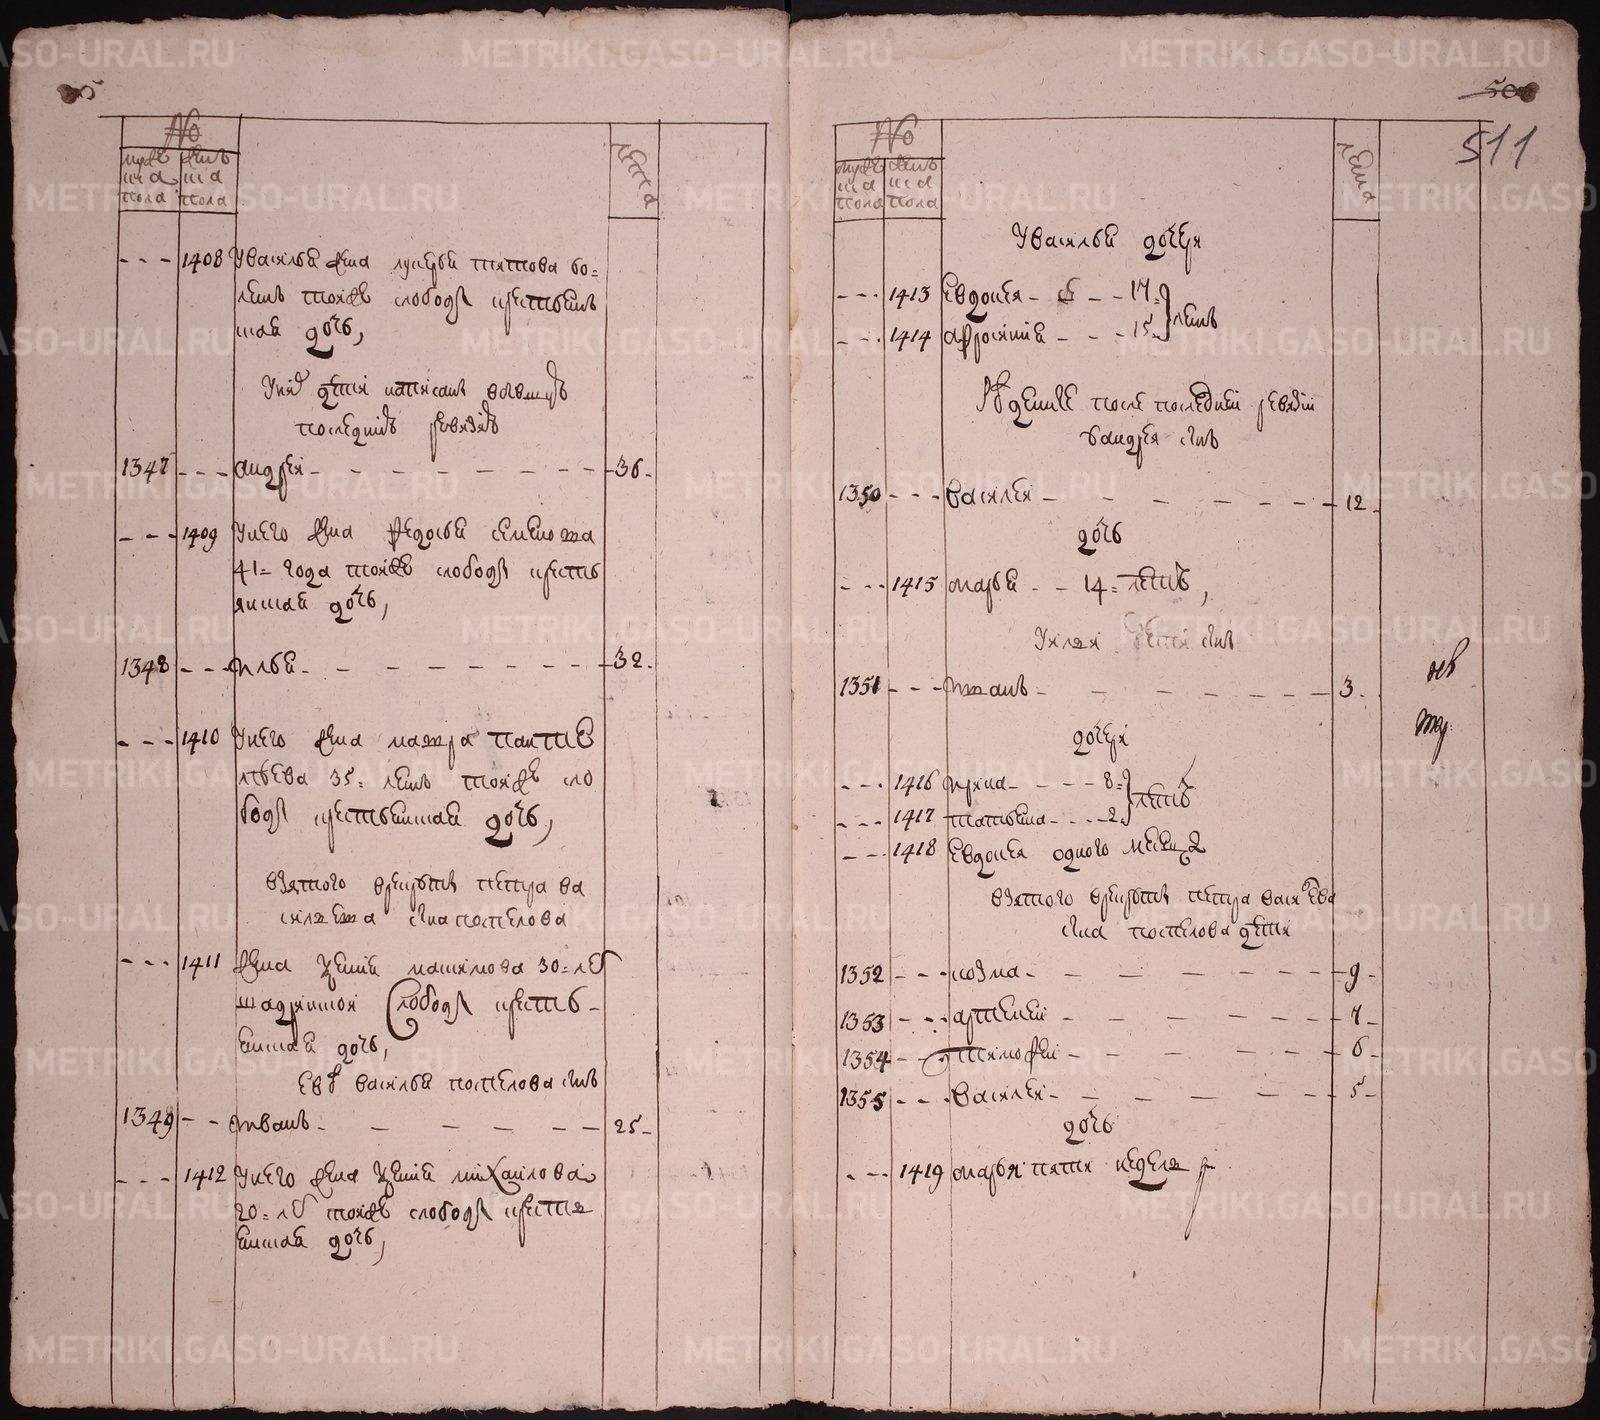 №
муж ска пола
женс ка пола
лета
1408 У василья жена лукерья титова бо=
летъ тояж слободы крестьенъ
ская дочь,
У них дети написаны въбывшую
последнюю ревизию
1347 андрей 36
1409 У него жена федосья семенова
41= года тояж слободы кресть
янская дочь,
1348 илья 32
1410 У него жена мавра панте
льева 35= летъ тояж сло
боды крестьенская дочь,
взятого врекруты петра ва
сильева сна поспелова
1411 жена устинья максимова 30= ле
шадринской слободы кресть
енская дочь,
Ево василья поспелова снъ
1349 иванъ 25
1412 У него жена устинья михаилова
20= ле тояж слободы крестья
енская дочь,
511
№
муж ска пола
женс ка пола
лета
У василья дочери
1413 Евдокея 17=
1414 афросинья 15 летъ
Рожденные после последней ревизии
у андрея снъ
1350 василей 12
дочь
1415 марья 14= летъ,
У ильи дети снъ
1351 иванъ 3
дочери
1416 ирина 8=
1417 татьяна 2 летъ
1418 Евдокея одного месеца
взятого врекруты петра васильева
сна поспелова дети
1352 козма 9
1353 артемей 7
1354 тимофей 6
1355 василей 5
дочь
1419 марья пяти недель